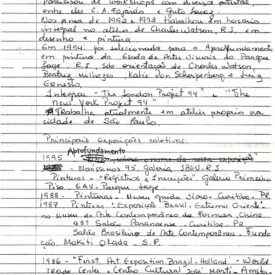 Participou de workshops com diversos artistas
entre eles E. A. Tapajós e Guto Lacaz.
Nos anos de 1992 e 1993 trabalhou em horário
integral no atelier de Charles Watson, R.J., em
desenho e pintura.
Em 1994 foi selecionada para o Aprofundamento
em pintura da Escola de Artes Visuais do Parque
Lage R.J., sob orientação de Charles Watson,
Beatriz Milhazes, Katie Van Scherpenberg e Luiz
Ernesto.
Integrou "The London Project 94" e "The
New York Project 94"
Trabalha atualmente em atelier próprio na
cidade de São Paulo.
Principais Exposições coletivas:
Aprofundamento
1995
- Novíssimos 95, Galeria IBEU R.J.
Pinturas - "Registros e Transições", Galeria Primeiro
Piso EAV - Parque Lage.
1988 - Pinturas - Museu Guido Viaro - Curitiba - PR
1987 Pinturas - Exposição "Brasil - Extremo Oriente"
no Museu de Arte Contemporânea de Formosa, China
43º Salão Paranaense - Curitiba - PR
Salão Brasileiro de Arte Contemporânea - Funda
ção Mokiti Okada - S.P.
1986 - "First Art Exposition Brazil - Holland - World
Trade Center e Centro Cultural José Martí - Amster